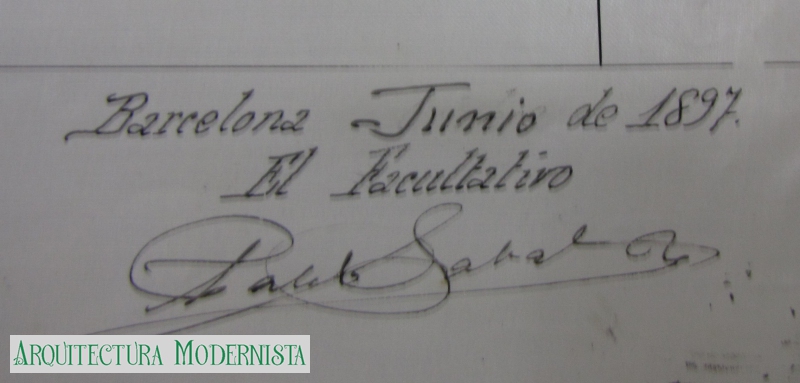 Barcelona Junio de 1897.
El Facultativo
Pablo Sabat
ARQUITECTURA MODERNISTA